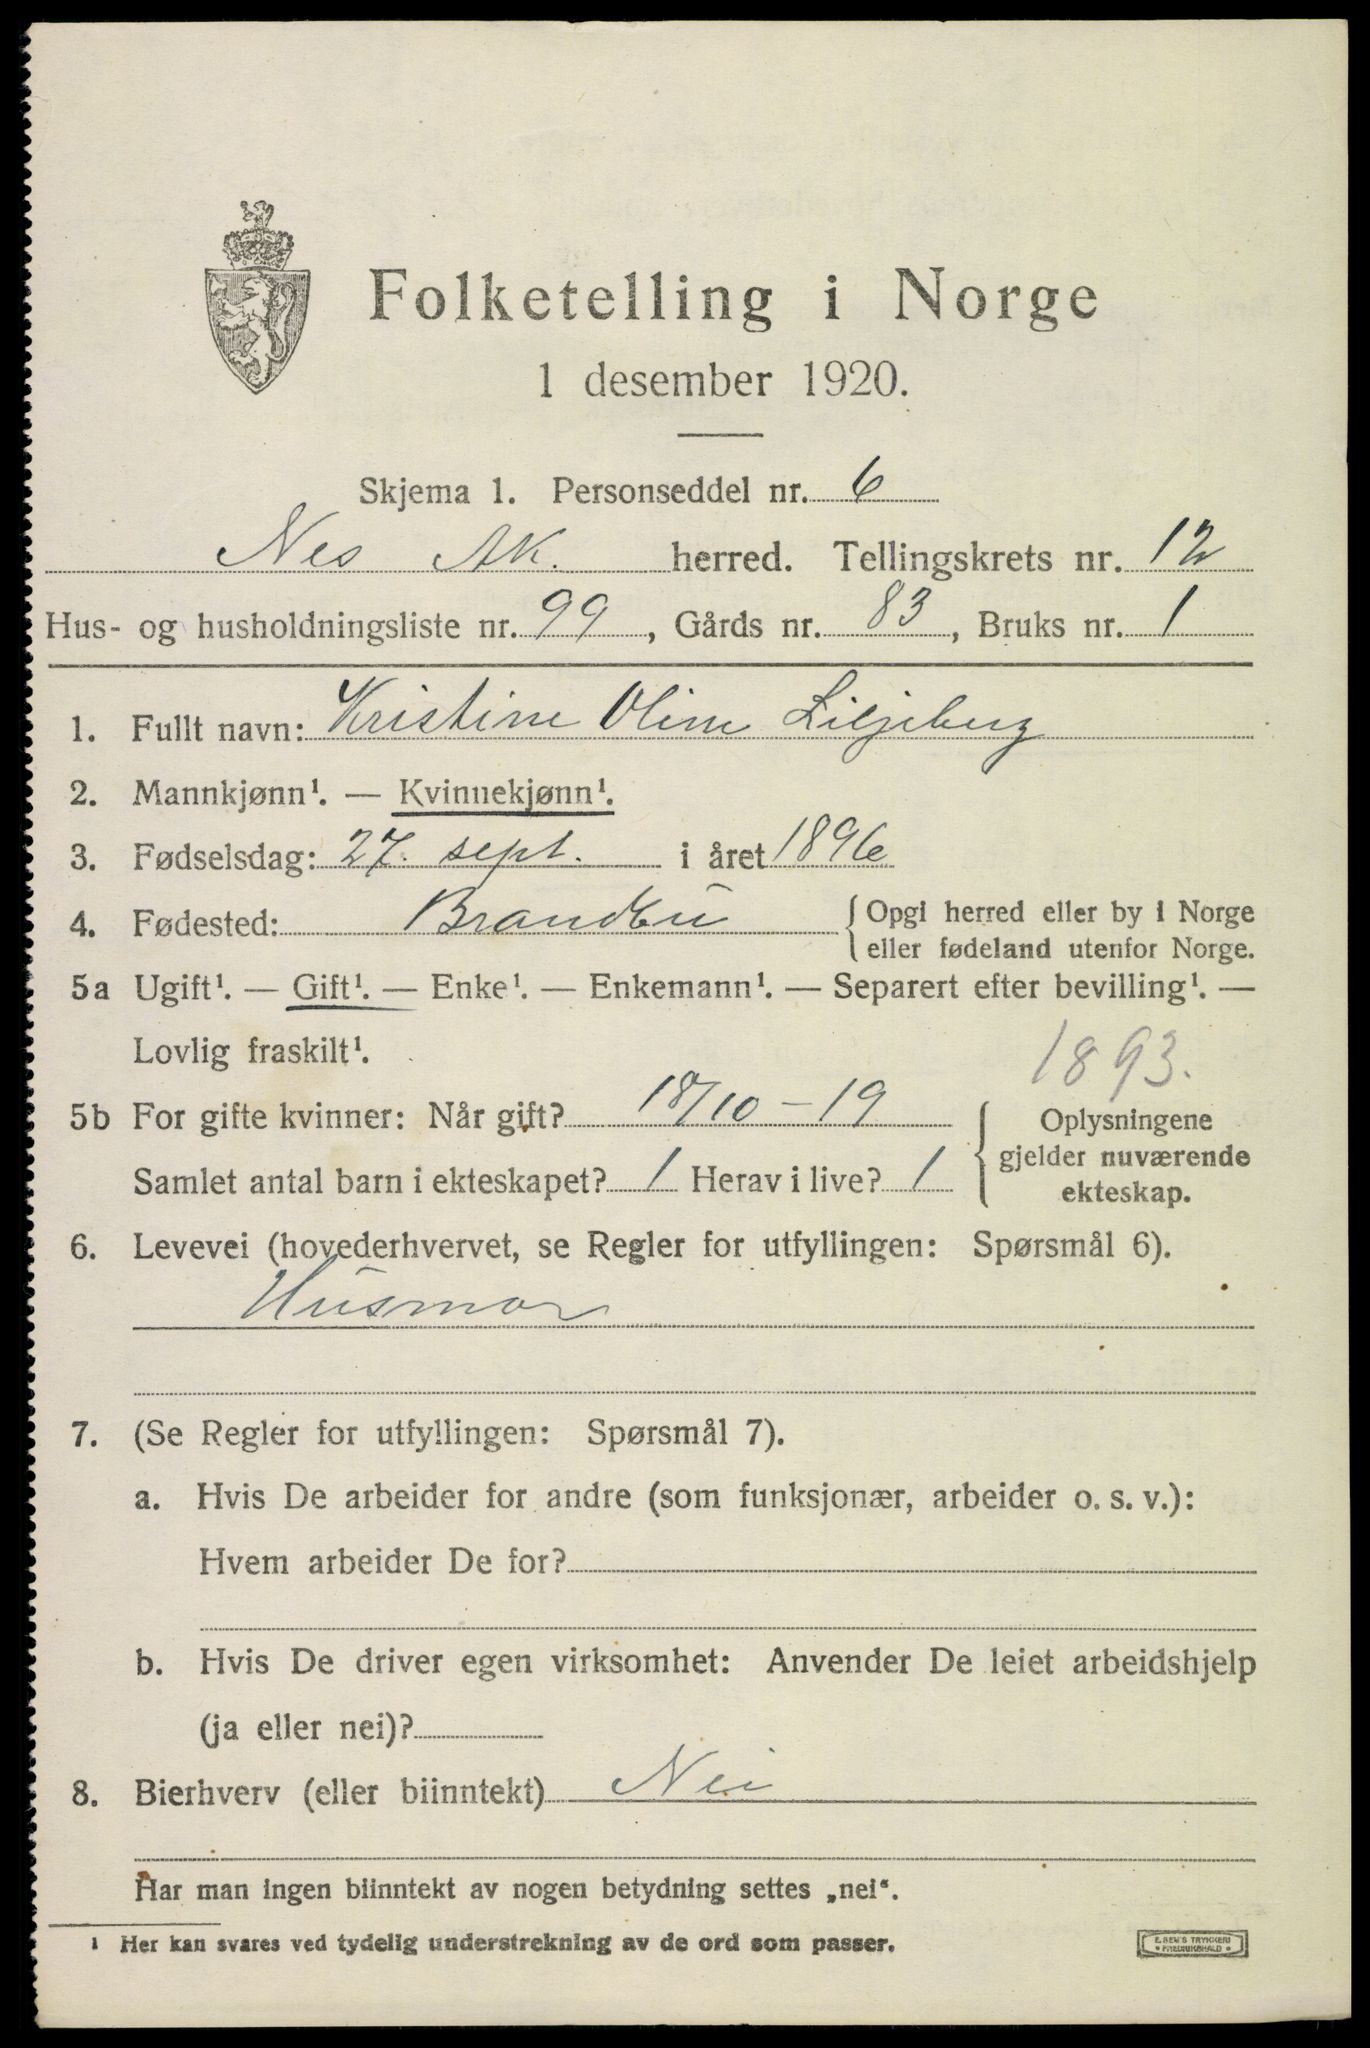 Folketelling i Norge
1 desember 1920.
Skjema 1. Personseddel nr. 6
Nes AK. herred. Tellingskrets nr. 12
Hus- og husholdningsliste nr. 99, Gårds nr. 83, Bruks nr. 1
1. Fullt navn: Kristine Oline Liljeberg
2. Mannkjønn¹. — Kvinnekjønn¹.
3. Fødselsdag: 27. sept. i året 1896
4. Fødested: Brandbu { Opgi herred eller by i Norge
eller fødeland utenfor Norge.
5a Ugift¹. — Gift¹. — Enke¹. — Enkemann¹. — Separert efter bevilling¹. —
Lovlig fraskilt¹.
1893.
5b For gifte kvinner: Når gift? 18/10 - 19
Samlet antal barn i ekteskapet? 1 Herav i live? 1
{ Oplysningene
gjelder nuværende
ekteskap.
6. Levevei (hovederhvervet, se Regler for utfyllingen: Spørsmål 6).
Husmor
7. (Se Regler for utfyllingen: Spørsmål 7).
a. Hvis De arbeider for andre (som funksjonær, arbeider o. s. v.):
Hvem arbeider De for?
b. Hvis De driver egen virksomhet: Anvender De leiet arbeidshjelp
(ja eller nei)?
8. Bierhverv (eller biinntekt) Nei
Har man ingen biinntekt av nogen betydning settes „nei“.
¹ Her kan svares ved tydelig understrekning av de ord som passer.
E. SEM'S TRYKKERI
• FREDRIKSHALD •